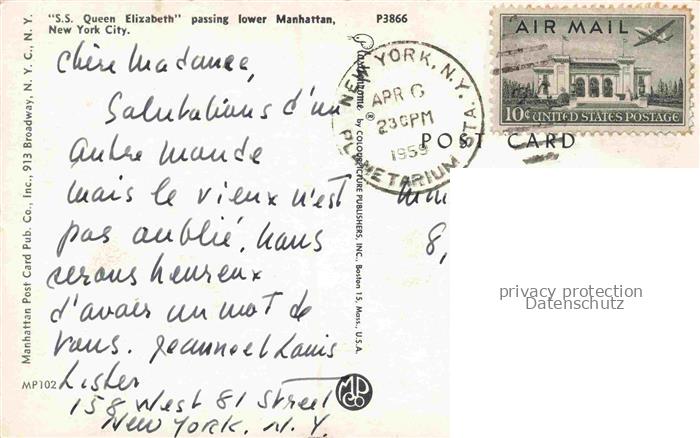 "S.S. Queen Elizabeth" passing lower Manhattan, P3866
New York City.
Chère Madame,
Salutations d'un
autre monde
mais le vieux n'est
pas oublié. nous
serons heureux
d'avoir un mot de
vous. Jeannoel Louis
Lister
158 West 81 Street
New York. N.Y.
MP102
MP CO
Manhattan Post Card Pub. Co., Inc., 913 Broadway, N. Y. C., N. Y.
Plastichrome ® by COLOURPICTURE PUBLISHERS, INC., Boston 15, Mass., U.S.A.
NEW YORK, N.Y.
APR 6
230PM
1959
PLANETARIUM STA.
AIR MAIL
10¢ UNITED STATES POSTAGE
POST CARD
8,
privacy protection
Datenschutz